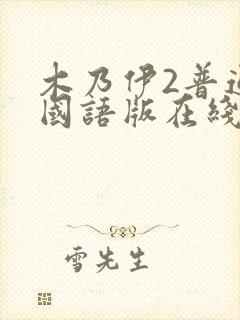 木乃伊2普通
國語版在綫
雪先生